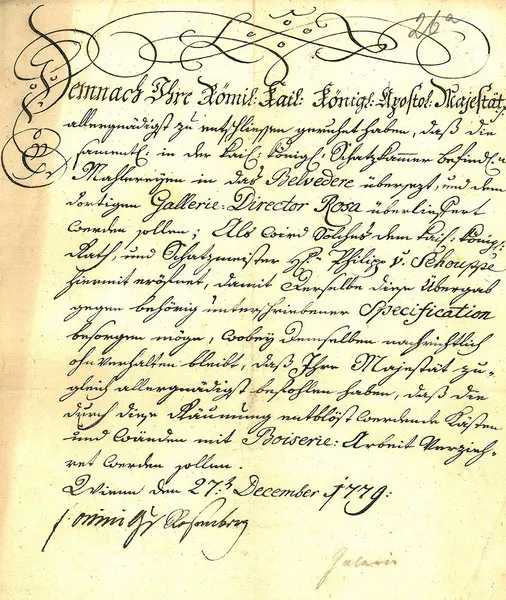 26a
Demnach Ihre Römis: Kais: Königl: Apostol: Majestät
allergnädigst zu entschliessen geruhet haben, daß die
samentl: in der kais: königl: Schatzkammer befindl:
Mahlereyen in das Belvedere übersezt, und dem
dortigen Gallerie-Director Rosa überliefert
werden sollen; Als wird Solches dem kais: königl:
Rath, und Schatzmeister H: Philipp v: Schouppe
hiermit eröfnet, damit Derselbe diese Übergab
gegen behörig unterschriebener Specification
besorgen möge, wobey Demselben nachrichtlich
ohnverhalten bleibt, daß Ihre Majestät zu-
gleich allergnädigst befohlen haben, daß die
durch diese Räumung entblöst werdende Kästen
und Wänden mit Boiserie-Arbeit verzieh-
ret werden sollen.
Wienn den 27: December 1779:
Rosenberg
Galerie